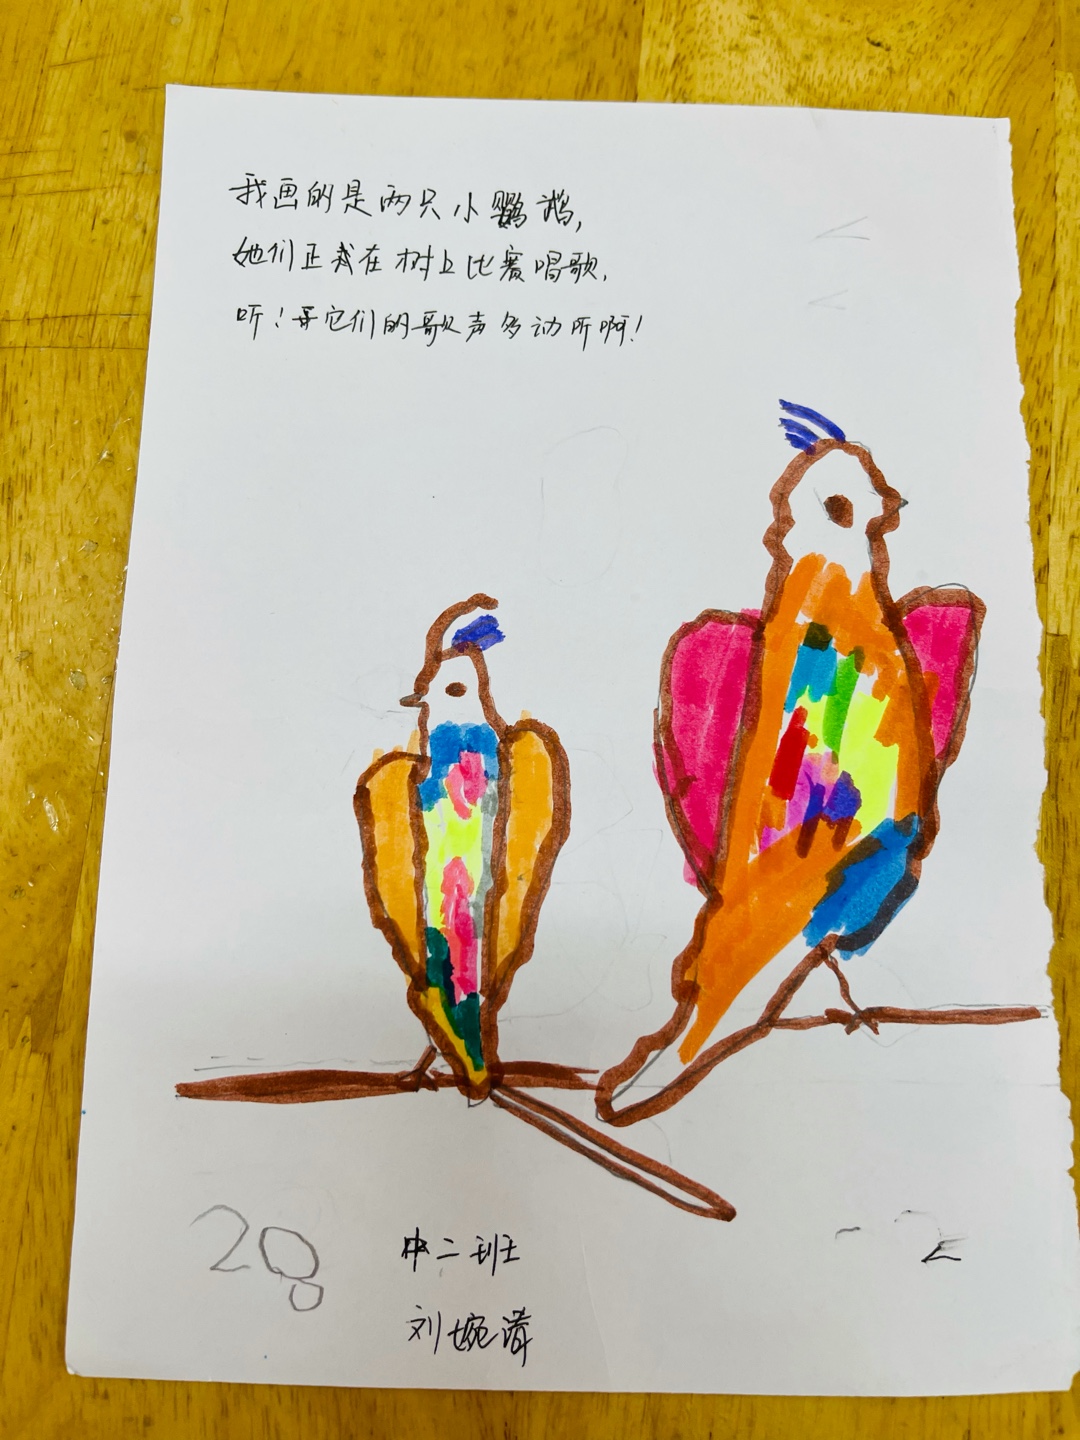 我画的是两只小鹦鹉,
她们正我在树上比赛唱歌,
听!它们的歌声多动听啊!
28
2
中二班
刘婉清